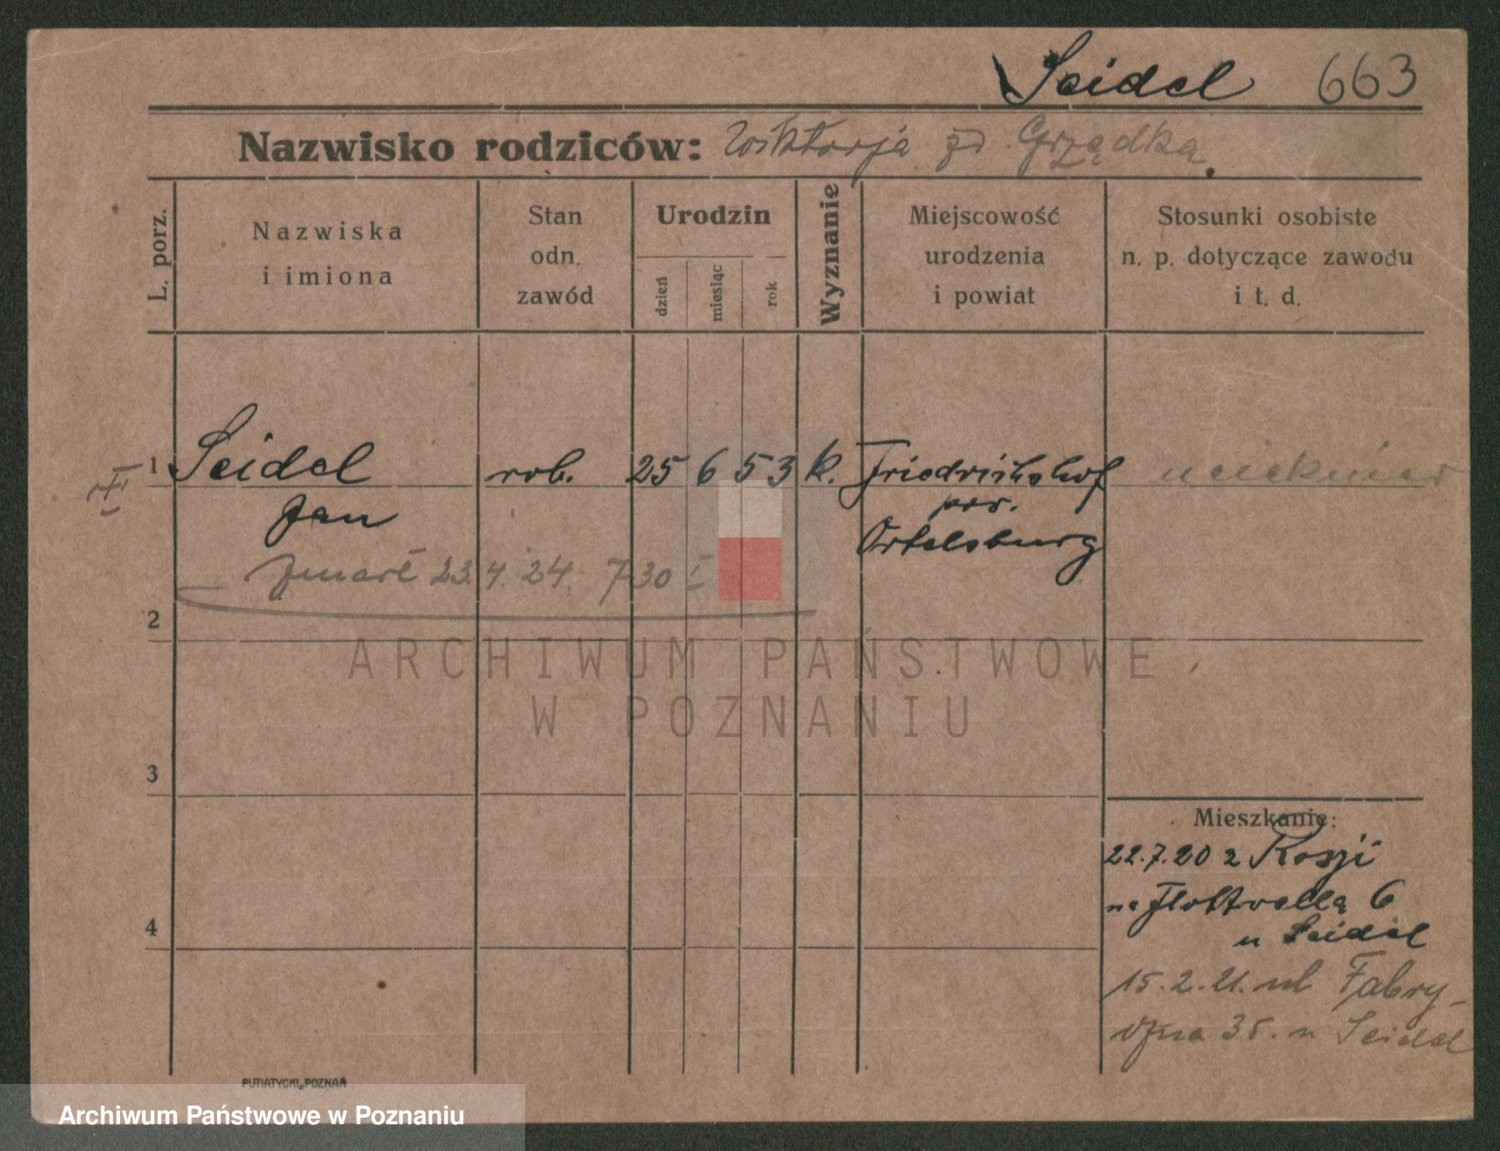 Seidel 663
Nazwisko rodziców: Wiktorja zd. Grządka
L. porz.
Nazwiska
i imiona
Stan
odn.
zawód
Urodzin
dzień
miesiąc
rok
Wyznanie
Miejscowość
urodzenia
i powiat
Stosunki osobiste
n. p. dotyczące zawodu
i t. d.
1 Seidel rob. 25 6 53 k. Friedrichshof uciekinier
Jan pow.
Ortelsburg
zmarł 23.4.24. 730 I
2
3
4
Mieszkanie:
22.7.20 z Rosji
na Flottwella 6
u Seidel
15.2.21. ul Fabry-
czna 35. u Seidel
PUTIATYCKI, POZNAŃ
ARCHIWUM PAŃSTWOWE
W POZNANIU
Archiwum Państwowe w Poznaniu